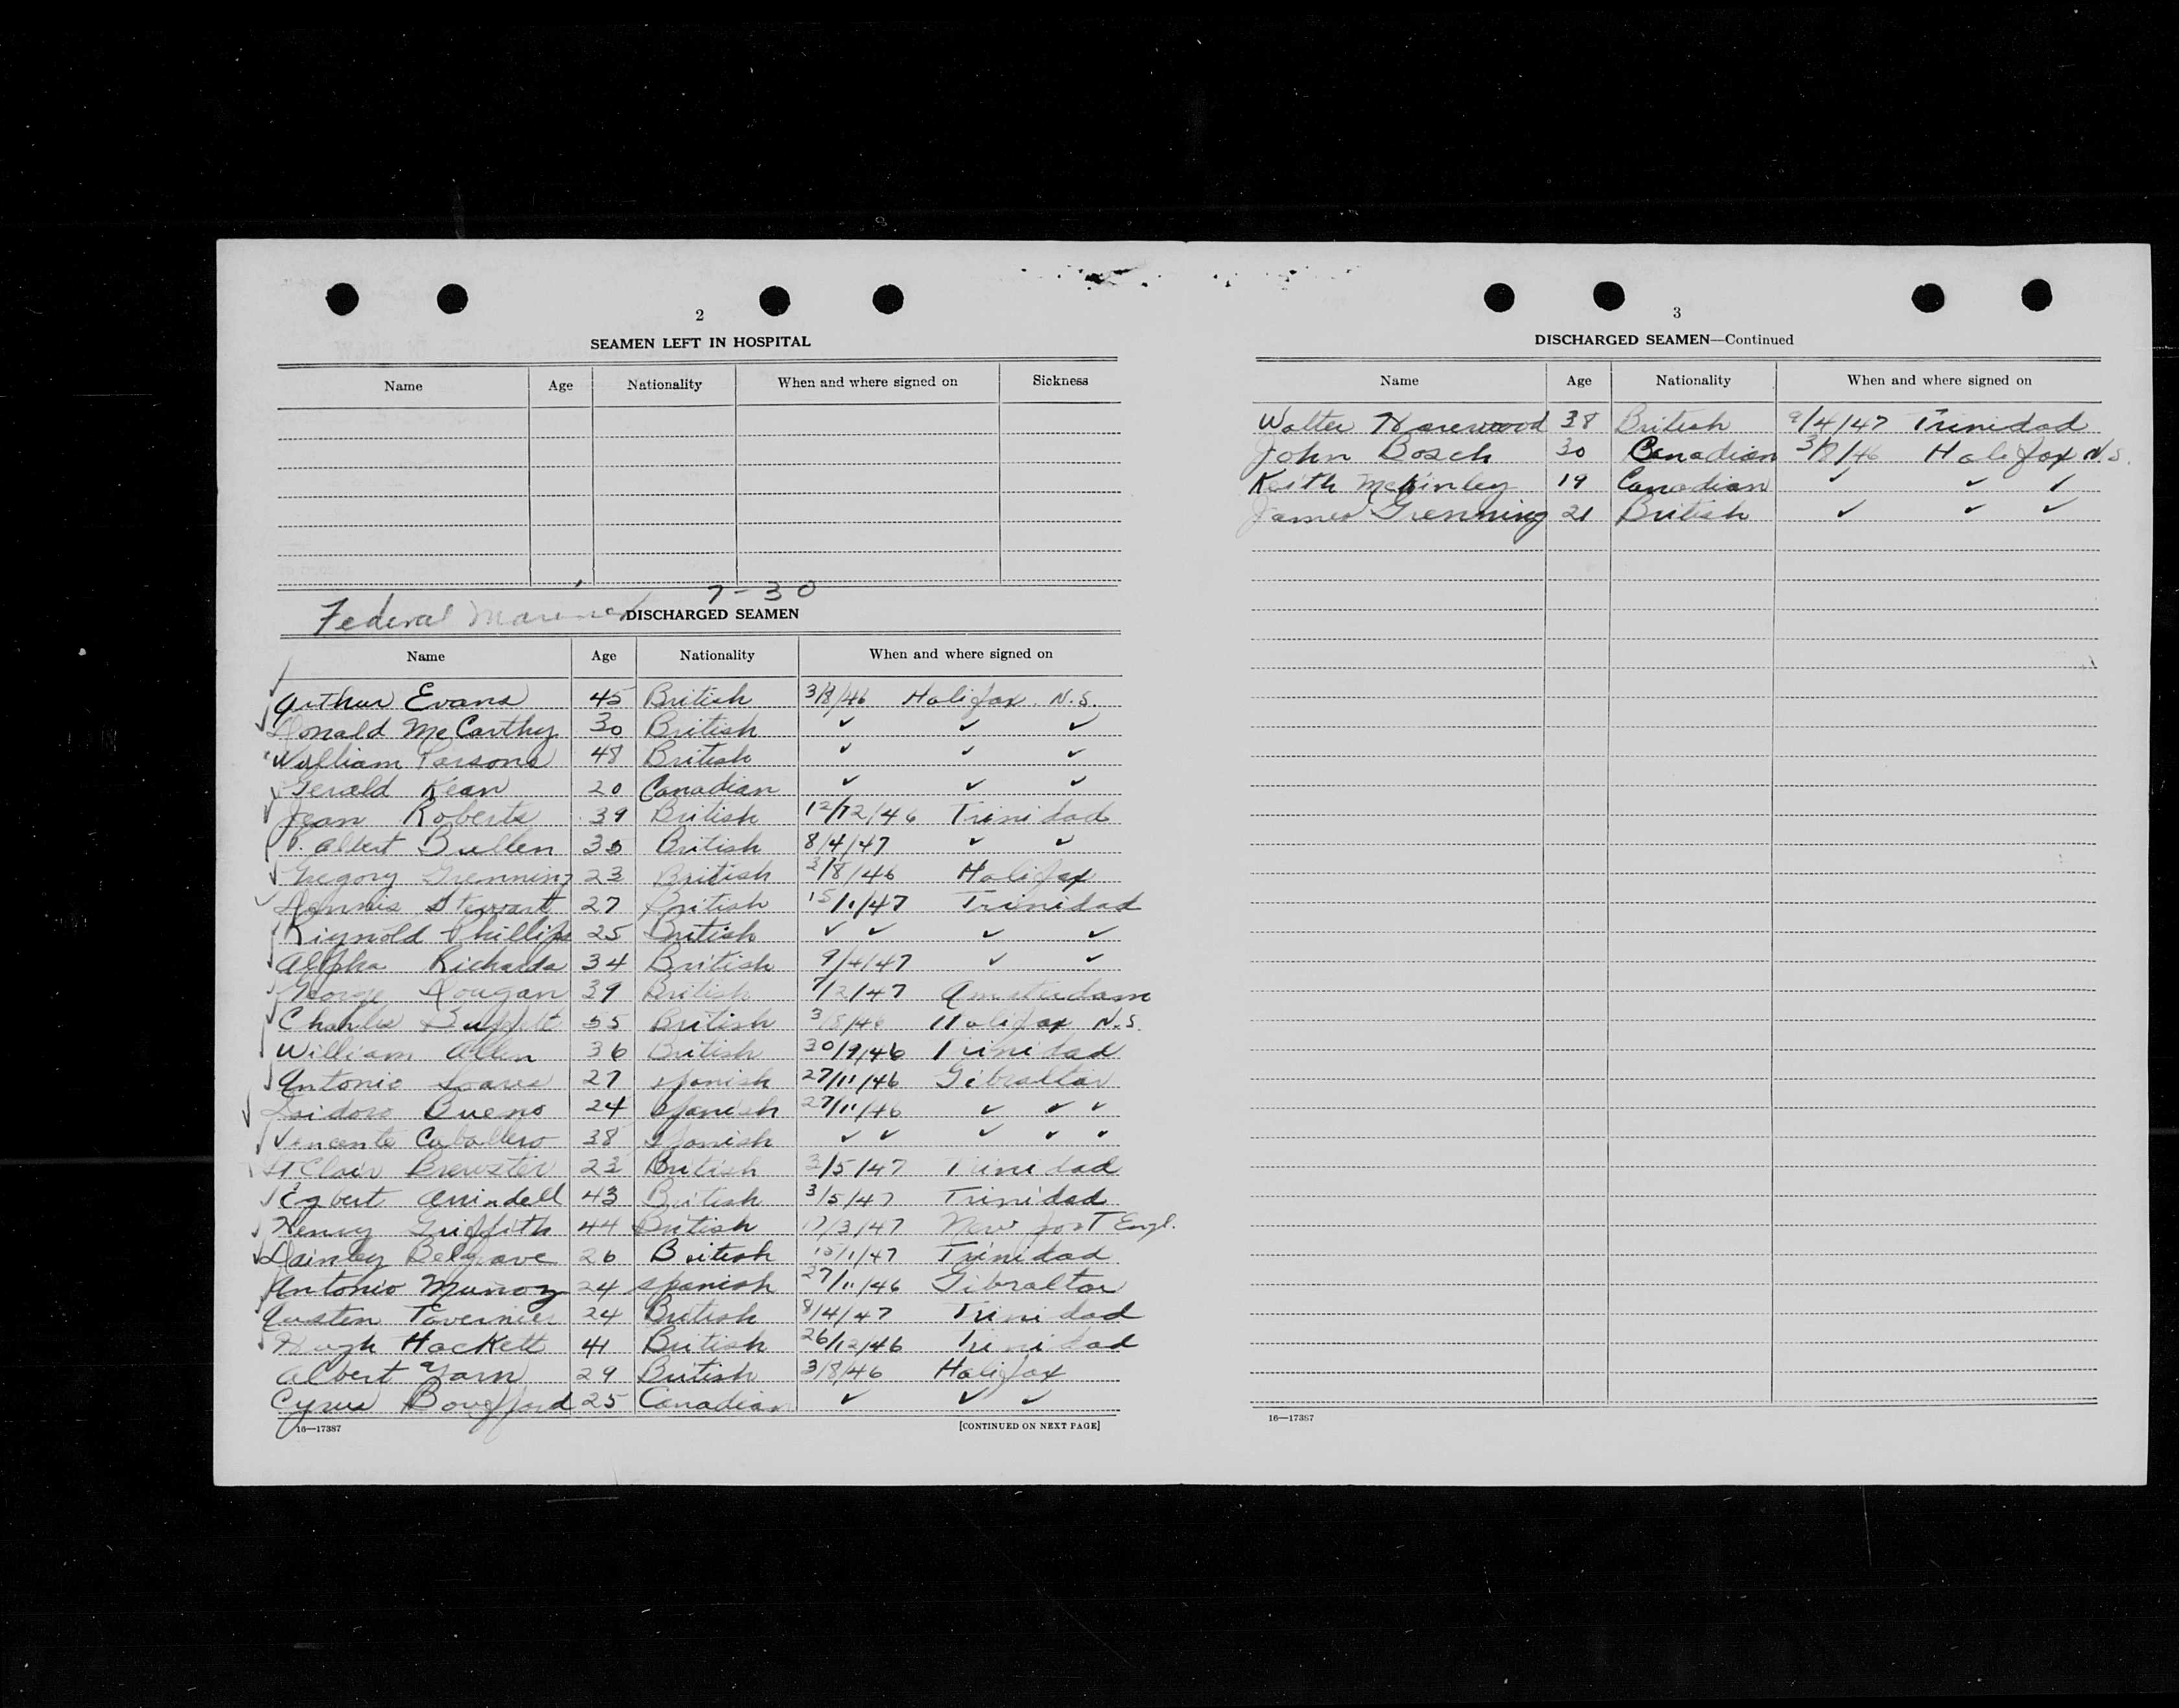 2
SEAMEN LEFT IN HOSPITAL
Name Age Nationality When and where signed on Sickness
7-30
Federal
DISCHARGED SEAMEN
Name Age Nationality When and where signed on
Arthur Evans 45 British 3/8/46 Halifax N.S.
Donald McCarthy 30 British ✓ ✓ ✓
William Parsons 48 British ✓ ✓ ✓
Gerald Kean 20 Canadian ✓ ✓ ✓
Jean Roberts 39 British 12/12/46 Trinidad
P. Albert Bullen 30 British 8/4/47 ✓ ✓
Gregory Grenning 23 British 3/8/46 Halifax
Dennis Stewart 27 British 15/1/47 Trinidad
Riynold Phillips 25 British ✓ ✓ ✓ ✓
Allpha Richards 34 British 9/4/47 ✓ ✓
George Rougan 39 British 7/12/47 Amsterdam
Charles 55 British 3/8/46 Halifax N.S.
William Allen 36 British 30/9/46 Trinidad
Antonio Soares 27 Spanish 27/11/46 Gibraltar
Isidoro Bueno 24 Spanish 27/11/46 ✓ ✓ ✓
Vencente Caballero 38 Spanish ✓ ✓ ✓ ✓ ✓
St Clair Brewster 23 British 3/5/47 Trinidad
Egbert Arrindell 43 British 3/5/47 Trinidad
Henry Griffith 44 British 17/3/47 New port Engl.
Dainley Belgrave 26 British 15/1/47 Trinidad
Antonio Munoz 24 Spanish 27/11/46 Gibraltar
Austen Tavernier 24 British 8/4/47 Trinidad
Hugh Hackett 41 British 26/12/46 Trinidad
Albert Yarn 29 British 3/8/46 Halifax
Cyrus Bowfford 25 Canadian ✓ ✓ ✓
16—17387 [CONTINUED ON NEXT PAGE]
3
DISCHARGED SEAMEN—Continued
Name Age Nationality When and where signed on
Walter Harewood 38 British 9/4/47 Trinidad
John Bosch 30 Canadian 3/8/46 Halifax N.S.
Keith McKinley 19 Canadian ✓ ✓ ✓
James Grenning 21 British ✓ ✓ ✓
16—17387